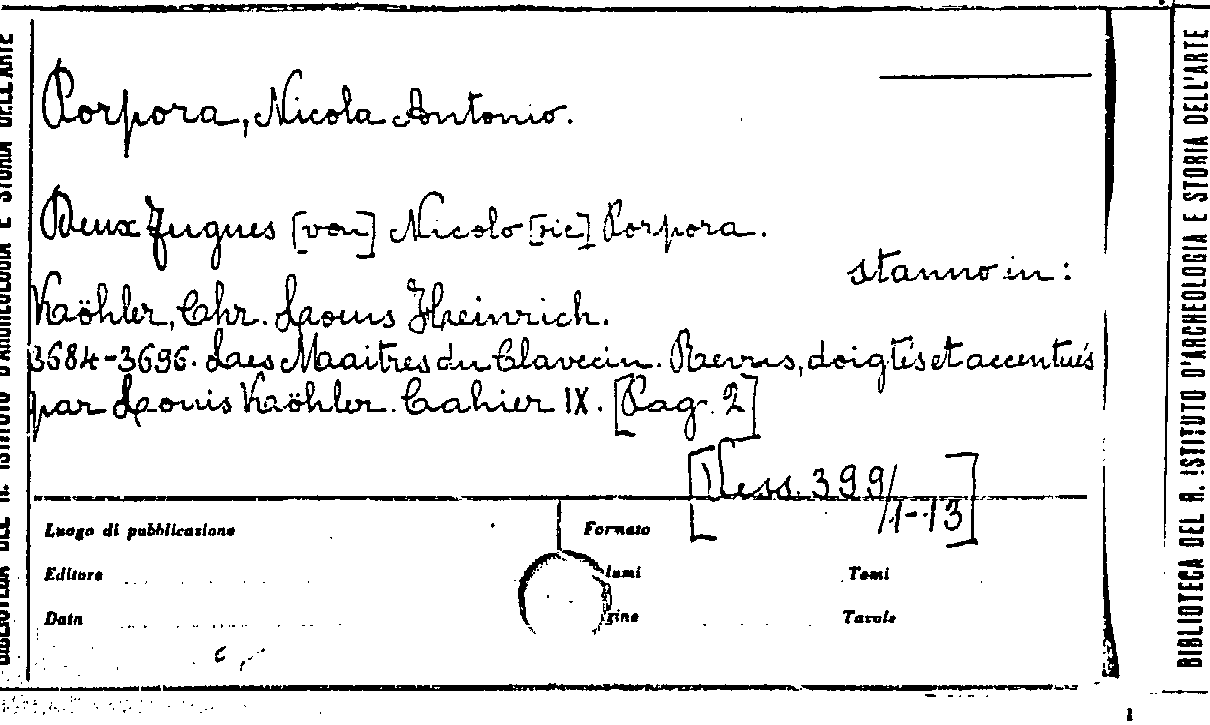 Porpora, Nicola Antonio.
Deux Fugues [von] Nicolo [sic] Porpora.
stanno in:
Köhler, Chr. Louis Heinrich.
3684-3696. Les Maitres du Clavecin. Revus, doigtés et accentués
par Louis Köhler. Cahier IX. [Pag. 2]
[Vess. 399/1-13]
Luogo di pubblicazione
Formato
Editore
lumi
Tomi
Data
gine
Tavole
BIBLIOTECA DEL R. ISTITUTO D'ARCHEOLOGIA E STORIA DELL'ARTE
BIBLIOTECA DEL R. ISTITUTO D'ARCHEOLOGIA E STORIA DELL'ARTE
1